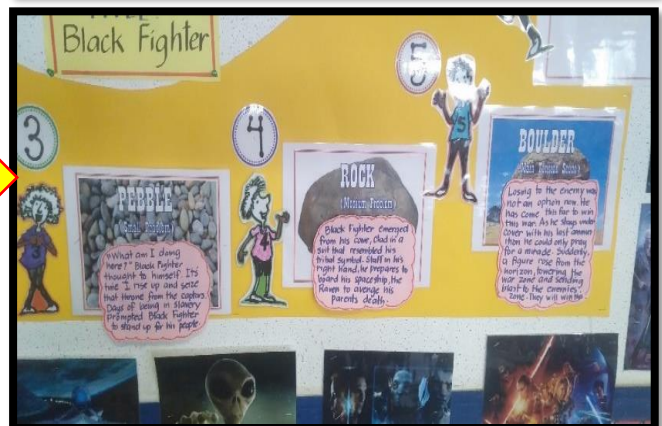 Black Fighter
3
4
5
PEBBLE
(Small Problem)
"What am I doing
here?" Black Fighter
thought to himself. It's
time I rise up and seize
that throne from the captors.
Days of being in slavery
prompted Black Fighter
to stand up for his people
ROCK
(Medium Problem)
Black Fighter emerged
from his cave, clad in a
suit that resembled his
tribal symbol. Staff in his
right hand, he prepares to
board his spaceship, the
Raven to avenge his
parents death.
BOULDER
Losing to the enemy was
not an option now. He
has come this far to win
this war. As he
cover with his last
then he could only pray
for a miracle. Suddenly
a figure rose from the
horizon, towering the
war zone and sending
blast to the enemies'
zone. They will win the